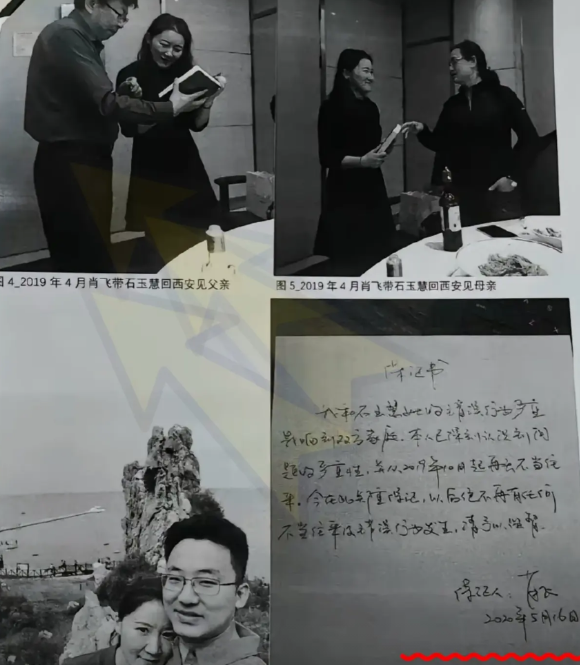 图 4_2019 年 4 月肖飞带石玉慧回西安见父亲
图 5_2019 年 4 月肖飞带石玉慧回西安见母亲
保证书
我和石玉慧女士的错误行为严重
影响到双方家庭。本人已深刻认识到问
题的严重性,并从2019年10月起再无不当往
来。今在此郑重保证,以后绝不再有任何
不当往来及错误行为发生,请予以监督。
保证人:肖飞
2020年5月16日